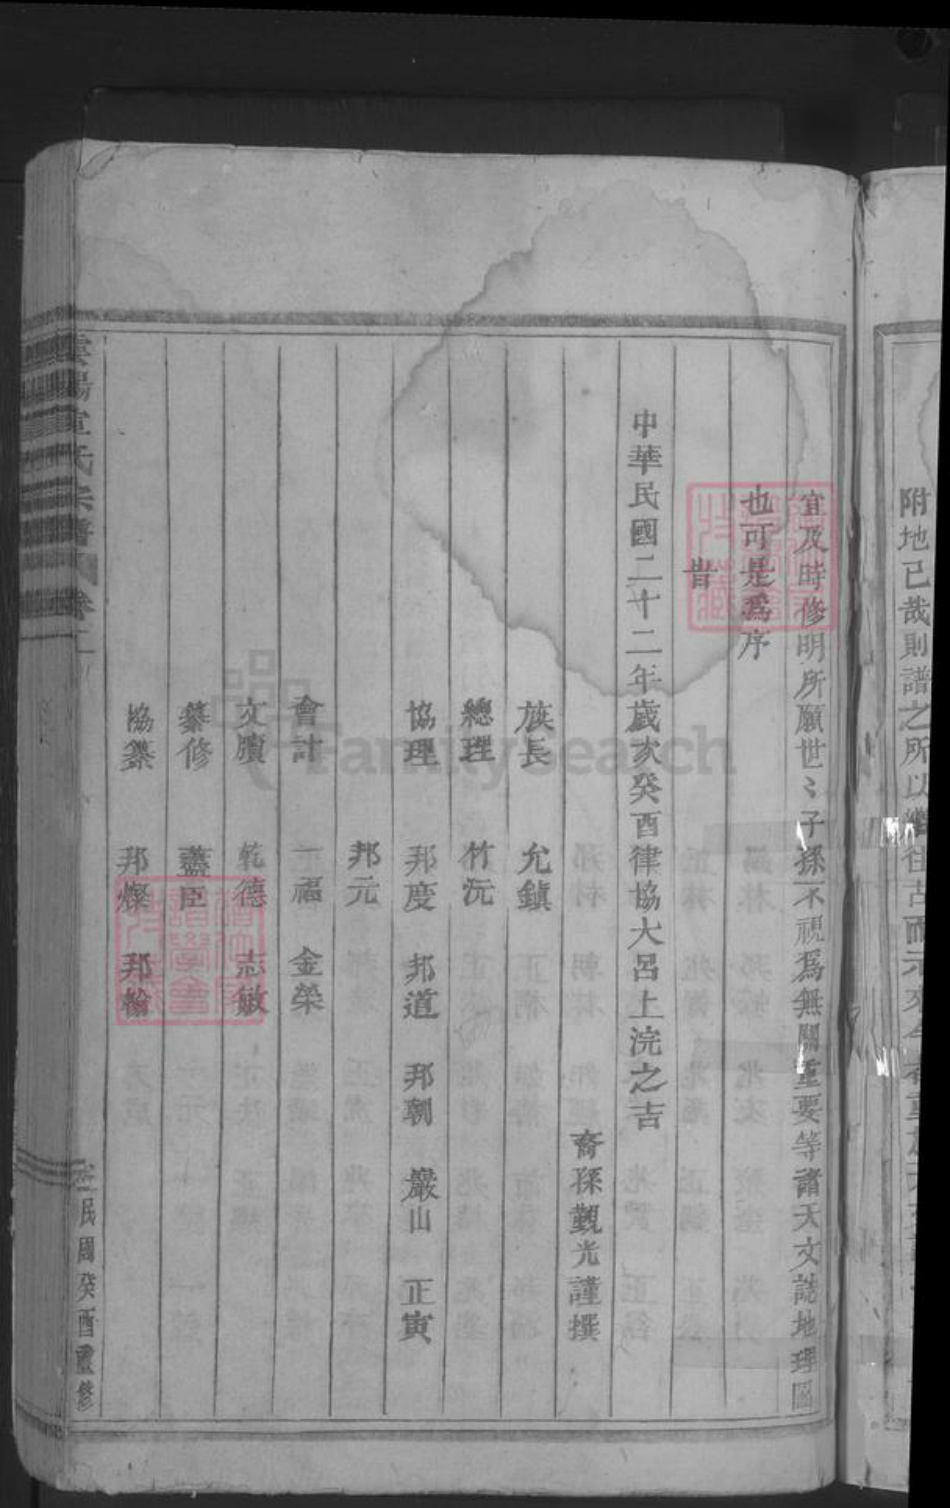 附地已哉則譜之所以
宜及時修明所願世〻子孫不視爲無關重要等諸天文誌地理圖
也可是爲序
旹
中華民國二十二年歲次癸酉律協大呂上浣之吉
裔孫觀光謹撰
族長 允鎮
總理 竹沅
協理 邦度 邦道 邦朝 巖山 正寅
邦元
會計 一福 金榮
文牘 乾德 志敏
纂修 藎臣
協纂 邦燦 邦翰
氏宗譜 卷二
民國癸酉重修
FamilySearch